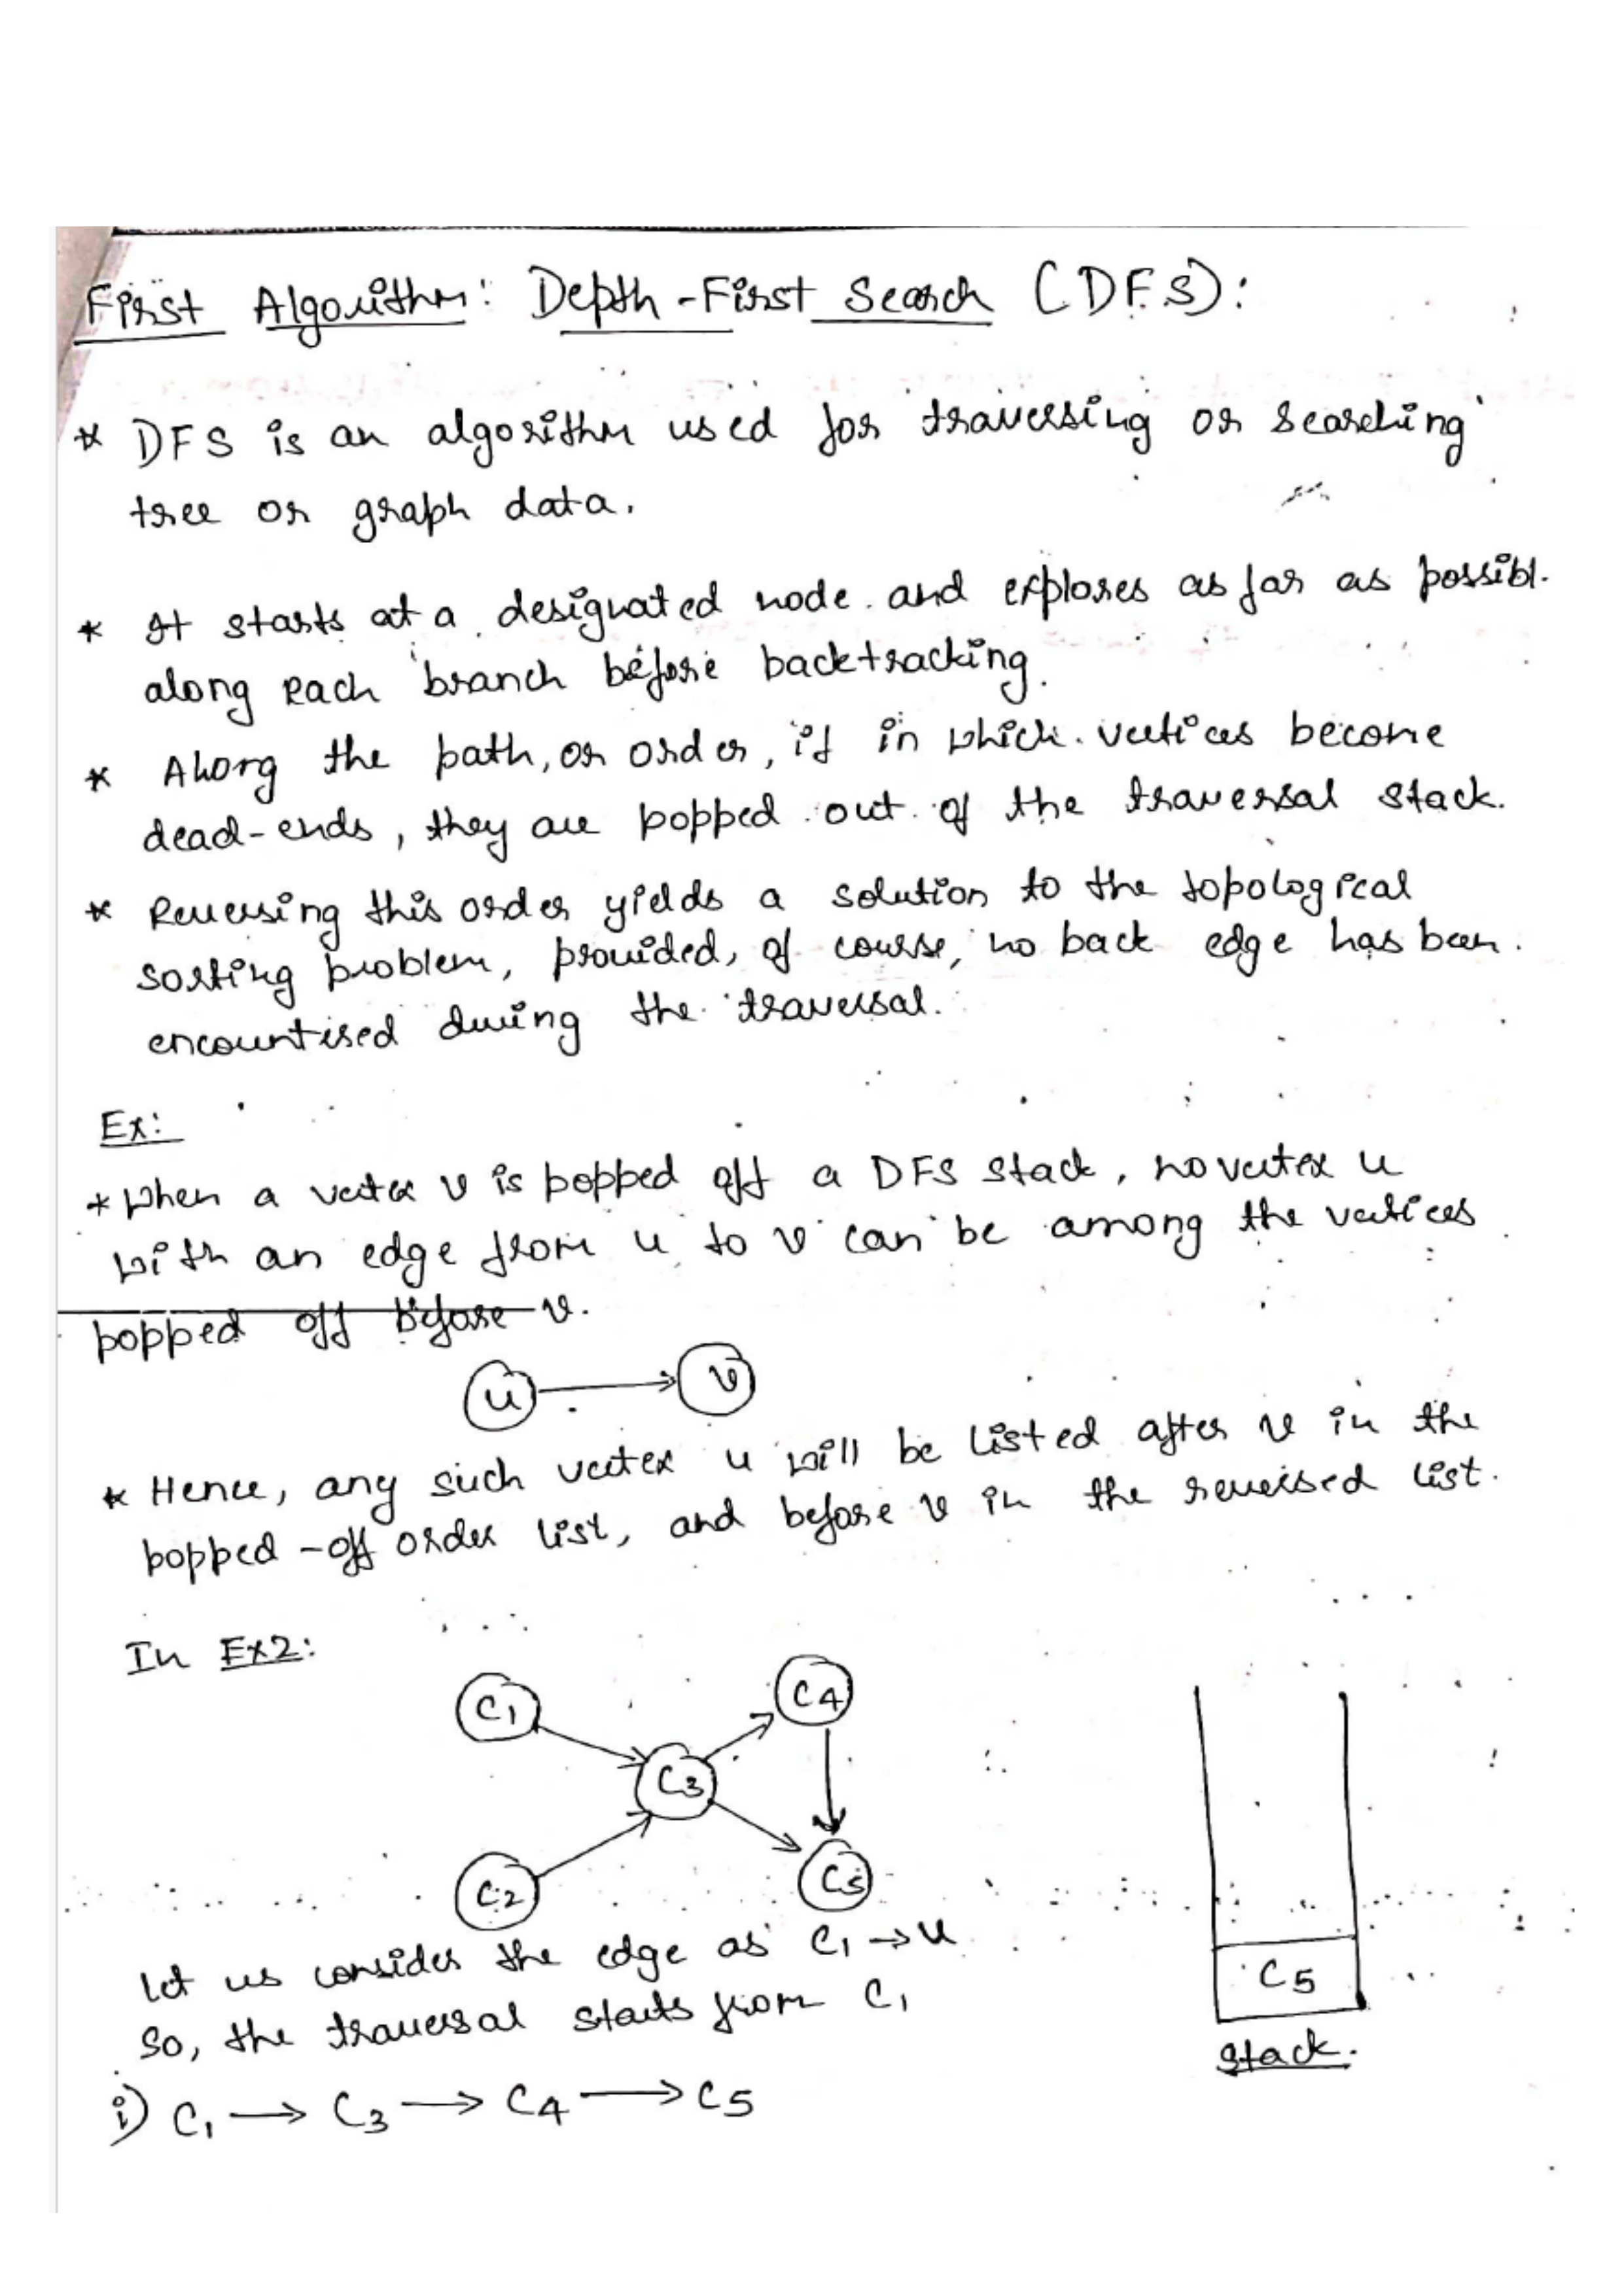 First Algorithm: Depth-First Search (DFS):
* DFS is an algorithm used for traversing or searching
tree or graph data.
* It starts at a designated node and explores as far as possibl.
along each branch before backtracking.
* Along the path, or order, if in which vertices become
dead-ends, they are popped out of the traversal stack.
* Reversing this order yields a solution to the topological
sorting problem, provided, of course, no back edge has been
encountised during the traversal.
Ex:
* When a vertex v is popped off a DFS stack, no vertex u
with an edge from u to v can be among the vertices
popped off before v.
u v
* Hence, any such vertex u will be listed after v in the
popped-off order list, and before v in the reversed list.
In Ex2:
C1 C4
C3
C2 C5
let us consider the edge as C1 → u
So, the traversal starts from C1
C5
Stack.
i) C1 → C3 → C4 → C5